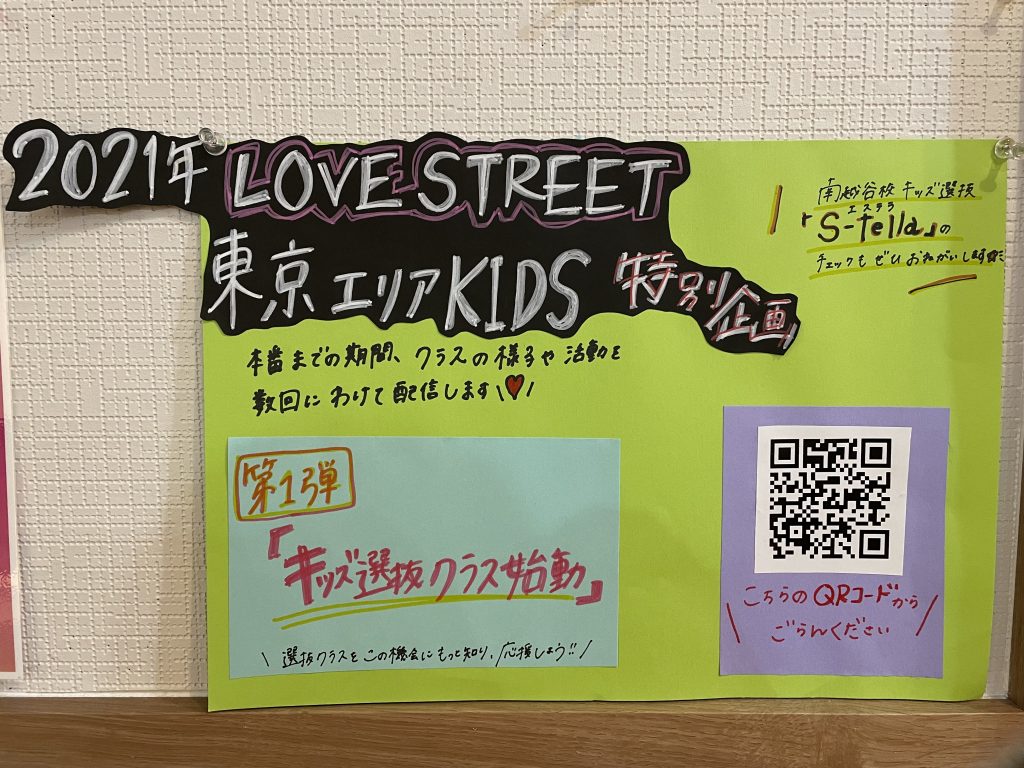 2021年 LOVE STREET
東京エリアKIDS 特別企画
南越谷校キッズ選抜
エステラ
「S-tella」の
チェックもぜひおねがいします
本番までの期間、クラスの様子や活動を
数回にわけて配信します\♥/
第1弾
「キッズ選抜クラス始動」
\ 選抜クラスをこの機会にもっと知り、応援しよう!! /
\ こちらのQRコードから /
ごらんください